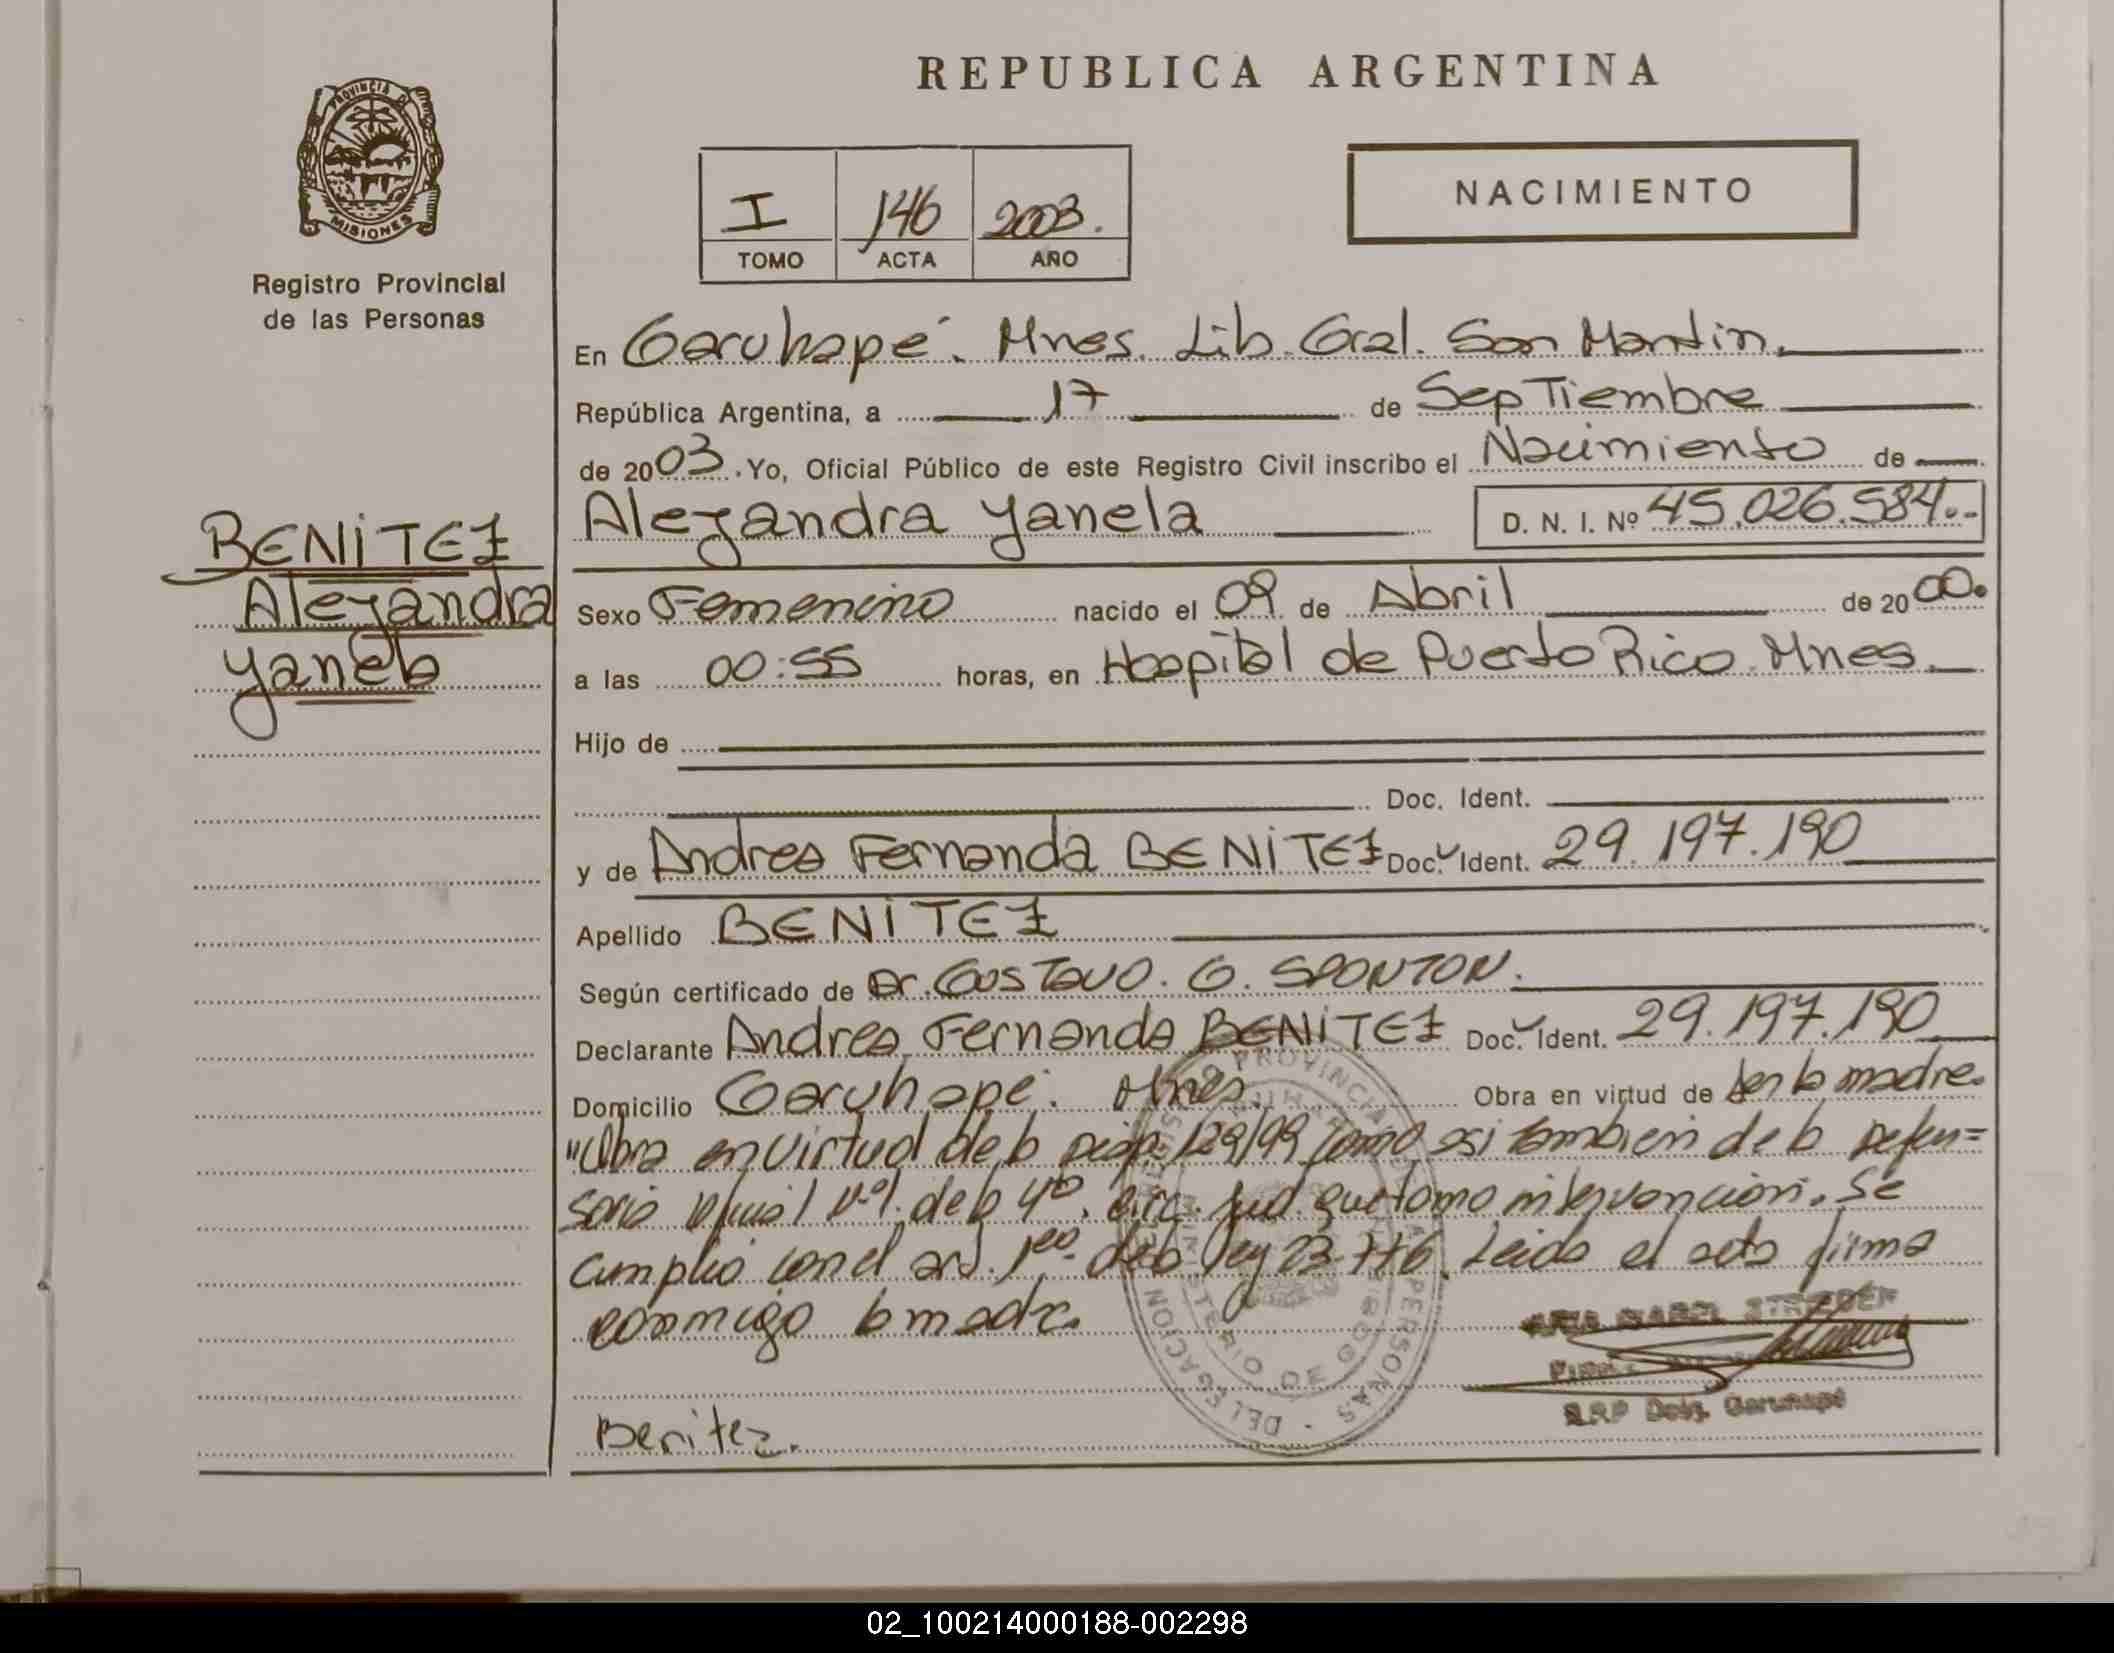 REPUBLICA ARGENTINA
PROVINCIA D
MISIONES
Registro Provincial
de las Personas
I 146 2003.
TOMO ACTA AÑO
NACIMIENTO
En Garuhapé. Mnes. Lib. Gral. San Martin.
República Argentina, a 17 de SepTiembre
de 2003. Yo, Oficial Público de este Registro Civil inscribo el Nacimiento de
Alejandra Yanela D. N. I. Nº 45.026.584.-
BENITEZ
Alejandra
Yanela
Sexo Femenino nacido el 09 de Abril de 2000.
a las 00:55 horas, en Hospital de Puerto Rico. Mnes.
Hijo de
Doc. Ident.
y de Andrea Fernanda BENITEZ Doc. Ident. 29.197.190
Apellido BENITEZ
Según certificado de Dr. GUSTAVO. G. SPONTON.
Declarante Andrea Fernanda BENITEZ Doc. Ident. 29.197.190
Domicilio Garuhapé. Mnes. Obra en virtud de ser la madre.
"Obra en virtud de la Disp. 129/99 como asi tambien de la Defen=
soria Nº1. de la 4º. circ. Jud. que tomo intervención. Se
cumplio con el art. 1ro. de la Ley 23.776. Leida el acta firma
conmigo la madre.
ISABEL
R.R.P Deleg. Garuhapé
Benitez.
PROVINCIAL PERSONAS - DELEGACION
MINISTERIO DE GOB
02_100214000188-002298